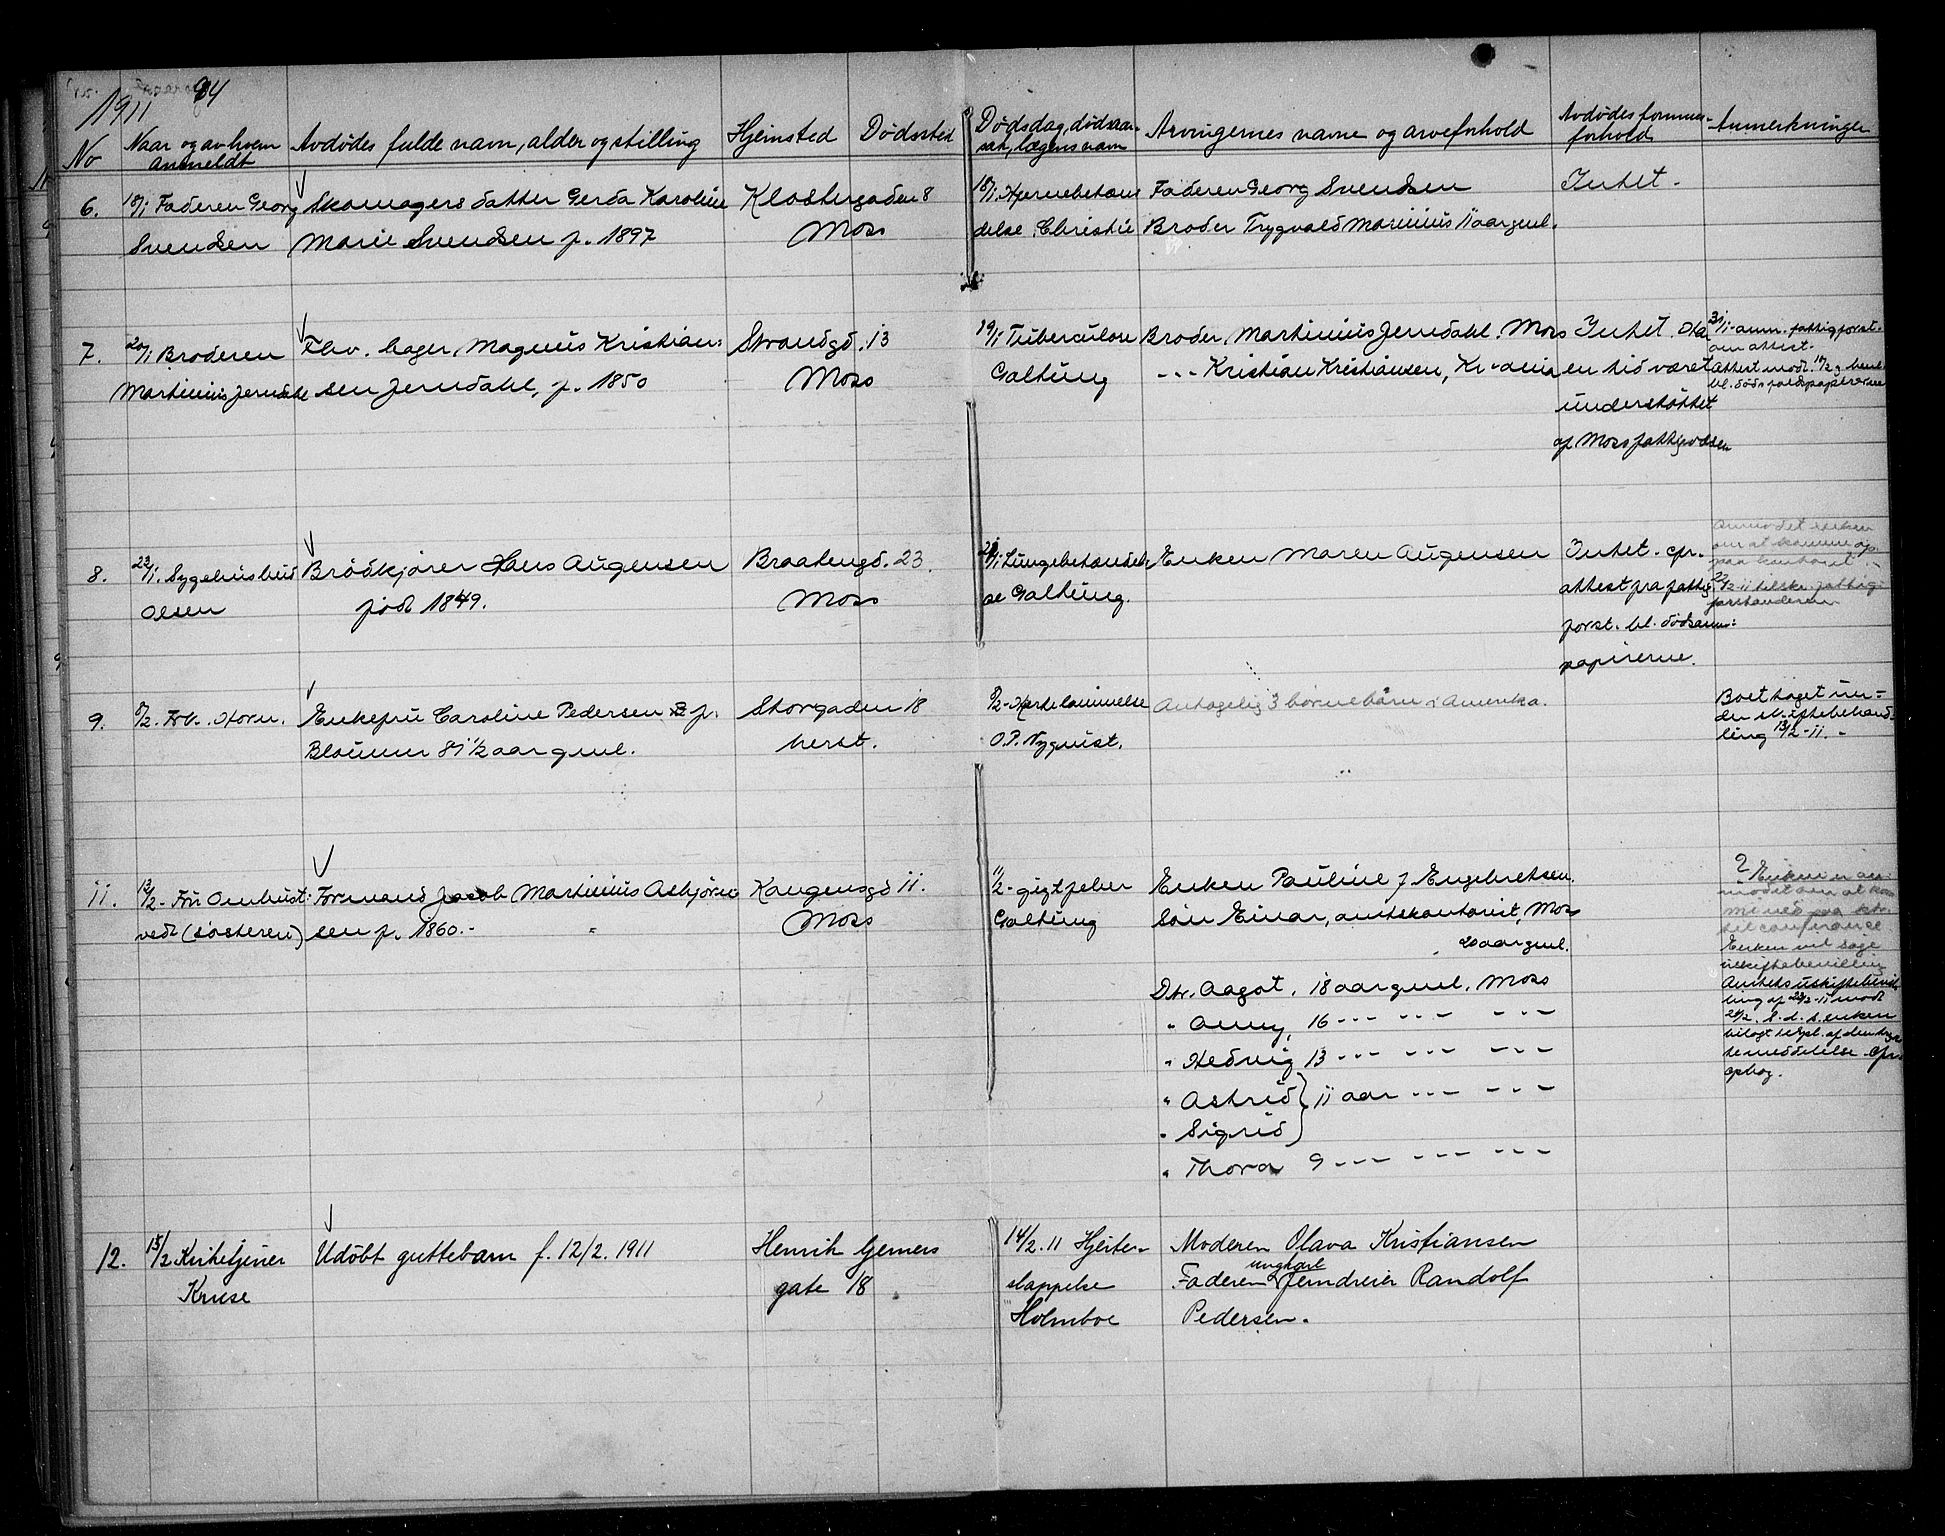 94
1911
No
Naar og av hvem anmeldt
Avdödes fulde navn, alder og stilling
Hjemsted
Dödssted
Dödsdag, dödsaarsak, lægens navn
Arvingernes navne og arveforhold
Avdödes formuesforhold
Anmerkninger
6.
18/1 Faderen Georg
Svendsen
Skomagers datter Gerda Karoline
Marie Svendsen f. 1897
Klostergaden 8
Moss
18/1 Hjernebetæn
delse Christie
Faderen Georg Svendsen
Broder Trygvald Marinius 11 aar gml.
Intet.
7.
20/1 Broderen
Martinius Jerndahl
Fhv. bager Magnus Kristian:
sen Jerndahl, f. 1850
Strandgd. 13
Moss
19/1 Tuberculose
Galtung
Broder Martinius Jerndahl. Moss
--- Kristian Kristiansen, Kr-ania
Intet. Har
en tid været
understöttet
af Moss fattigvæsen
31/1 anm. fattigforst.
om attest.
Attest modt.
bl. dödsfaldspapirerne
8.
22/1. Sygehusbud
Olsen
Brödkjörer Hans Augensen
född 1849.
Braatengd. 23.
Moss
21/1 Lungebetændel
se Galtung.
Enken Maren Augensen
Intet. cfr.
attest fra fattig
forst. bl. dödsanm:
papirerne.
Anmodet enken
om at komme op
paa kontoret.
22/2-11 tilskr. fattig-
forstanderen
9.
8/2. Frk. Horn.
Enkefru Caroline Pedersen f.
Blaumer 81 1/2 aar gml.
Storgaden 18
herst.
8/2-Hjertelammelse
O.P. Nyquist.
Antagelig 3 börnebörn i Amerika.
Boet taget un-
der skiftebehand-
ling 13/2-11.-
11.
13/2- Fru Omhust:
vedt (sösteren)
Formand Jacob Martinius Asbjörn
sen f. 1860.-
Kongensgd 11.
Moss
11/2-gigtfeber
Galtung
Enken Pauline f Engebretsen.
Sön Einar, amtskontorist, Moss
20 aar gml.
Dtr. Aagot, 18 aar gml. Moss
" Anny, 16 --- --- ---
" Hedvig 13 --- --- ---
" Astrid } 11 aar --- ---
" Sigrid
" Thora 9 --- --- ---
? Enken er an-
modet om at kom
me ned paa ktr.
til conferance.
Enken vil söge
uskiftebevilling
Amtets uskiftebevil
ling af 22/2-11 modt
24/2. S. d. s. enken
bilagt gjenpl. af den trykte
meddelelse. Cfr.
12.
15/2 Kirketjener
Kruse
Udöbt guttebarn f. 12/2. 1911
Henrik Gerners
gate 18
14/2. 11 Hjerte-
slappelse
Holmboe
Moderen Olava Kristiansen
ungkarl
Faderen Jerndreier Randolf
Pedersen.